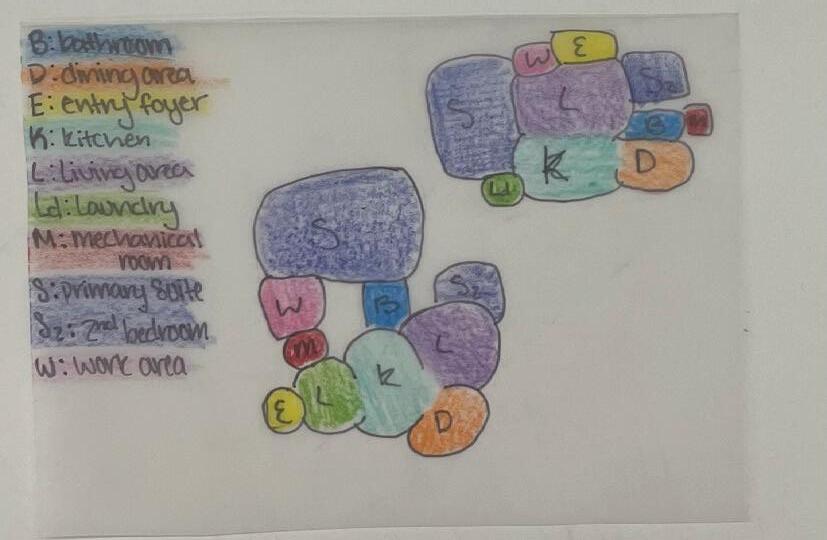 B: bathroom
D: dining area
E: entry foyer
K: kitchen
L: living area
Ld: Laundry
M: mechanical
room
S: primary suite
S2: 2nd bedroom
W: work area
W E
S L S2
B M
K D
Ld
S
W B S2
M L
E L K
D